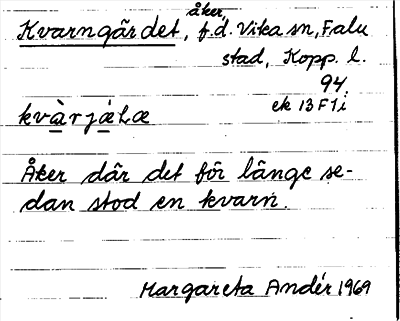 Kvarngärdet, åker, f.d. Vika sn, Falu
stad, Kopp. l.
94.
ek 13F1i
kvàrjæLæ
Åker där det för länge se-
dan stod en kvarn.
Margareta Andér 1969